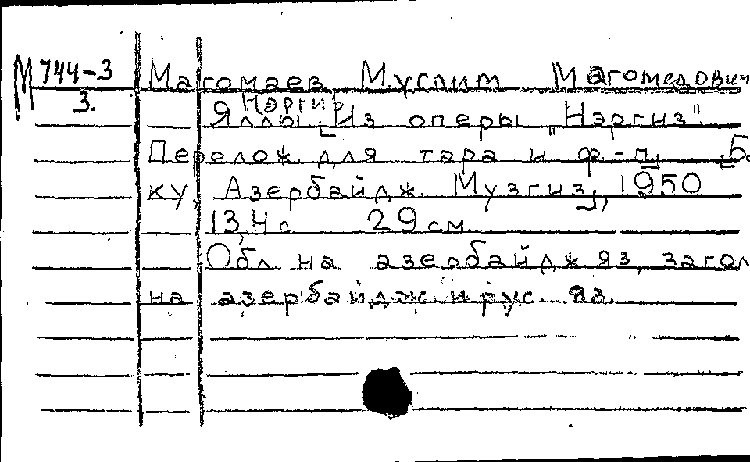 М 744-3
3.
Магомаев Муслим Магомедович
Нэргиз
Яллы. [Из оперы „Нэргиз"
Перелож. для тара и ф-п. [Ба
ку, Азербайдж. Музгиз], 1950
13,4 с 29 см
Обл. на азербайдж яз, загол
на азербайдж. и рус. яз.